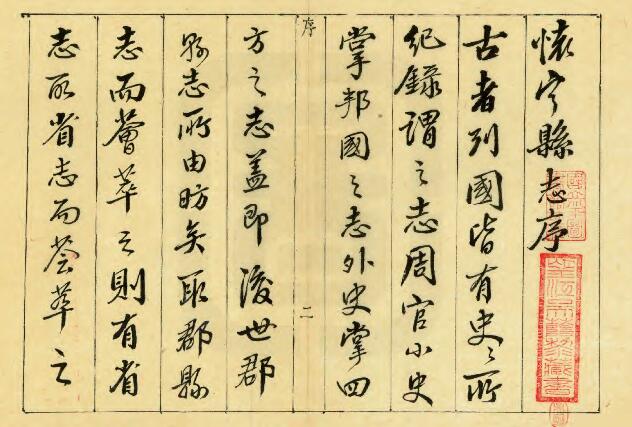 懷宁縣志序
古者列國皆有史〻所
紀錄謂之志周官小史
掌邦國之志外史掌四
序
二
方之志蓋即後世郡
縣志所由昉矣取郡縣
志而薈萃之則有省
志取省志而薈萃之